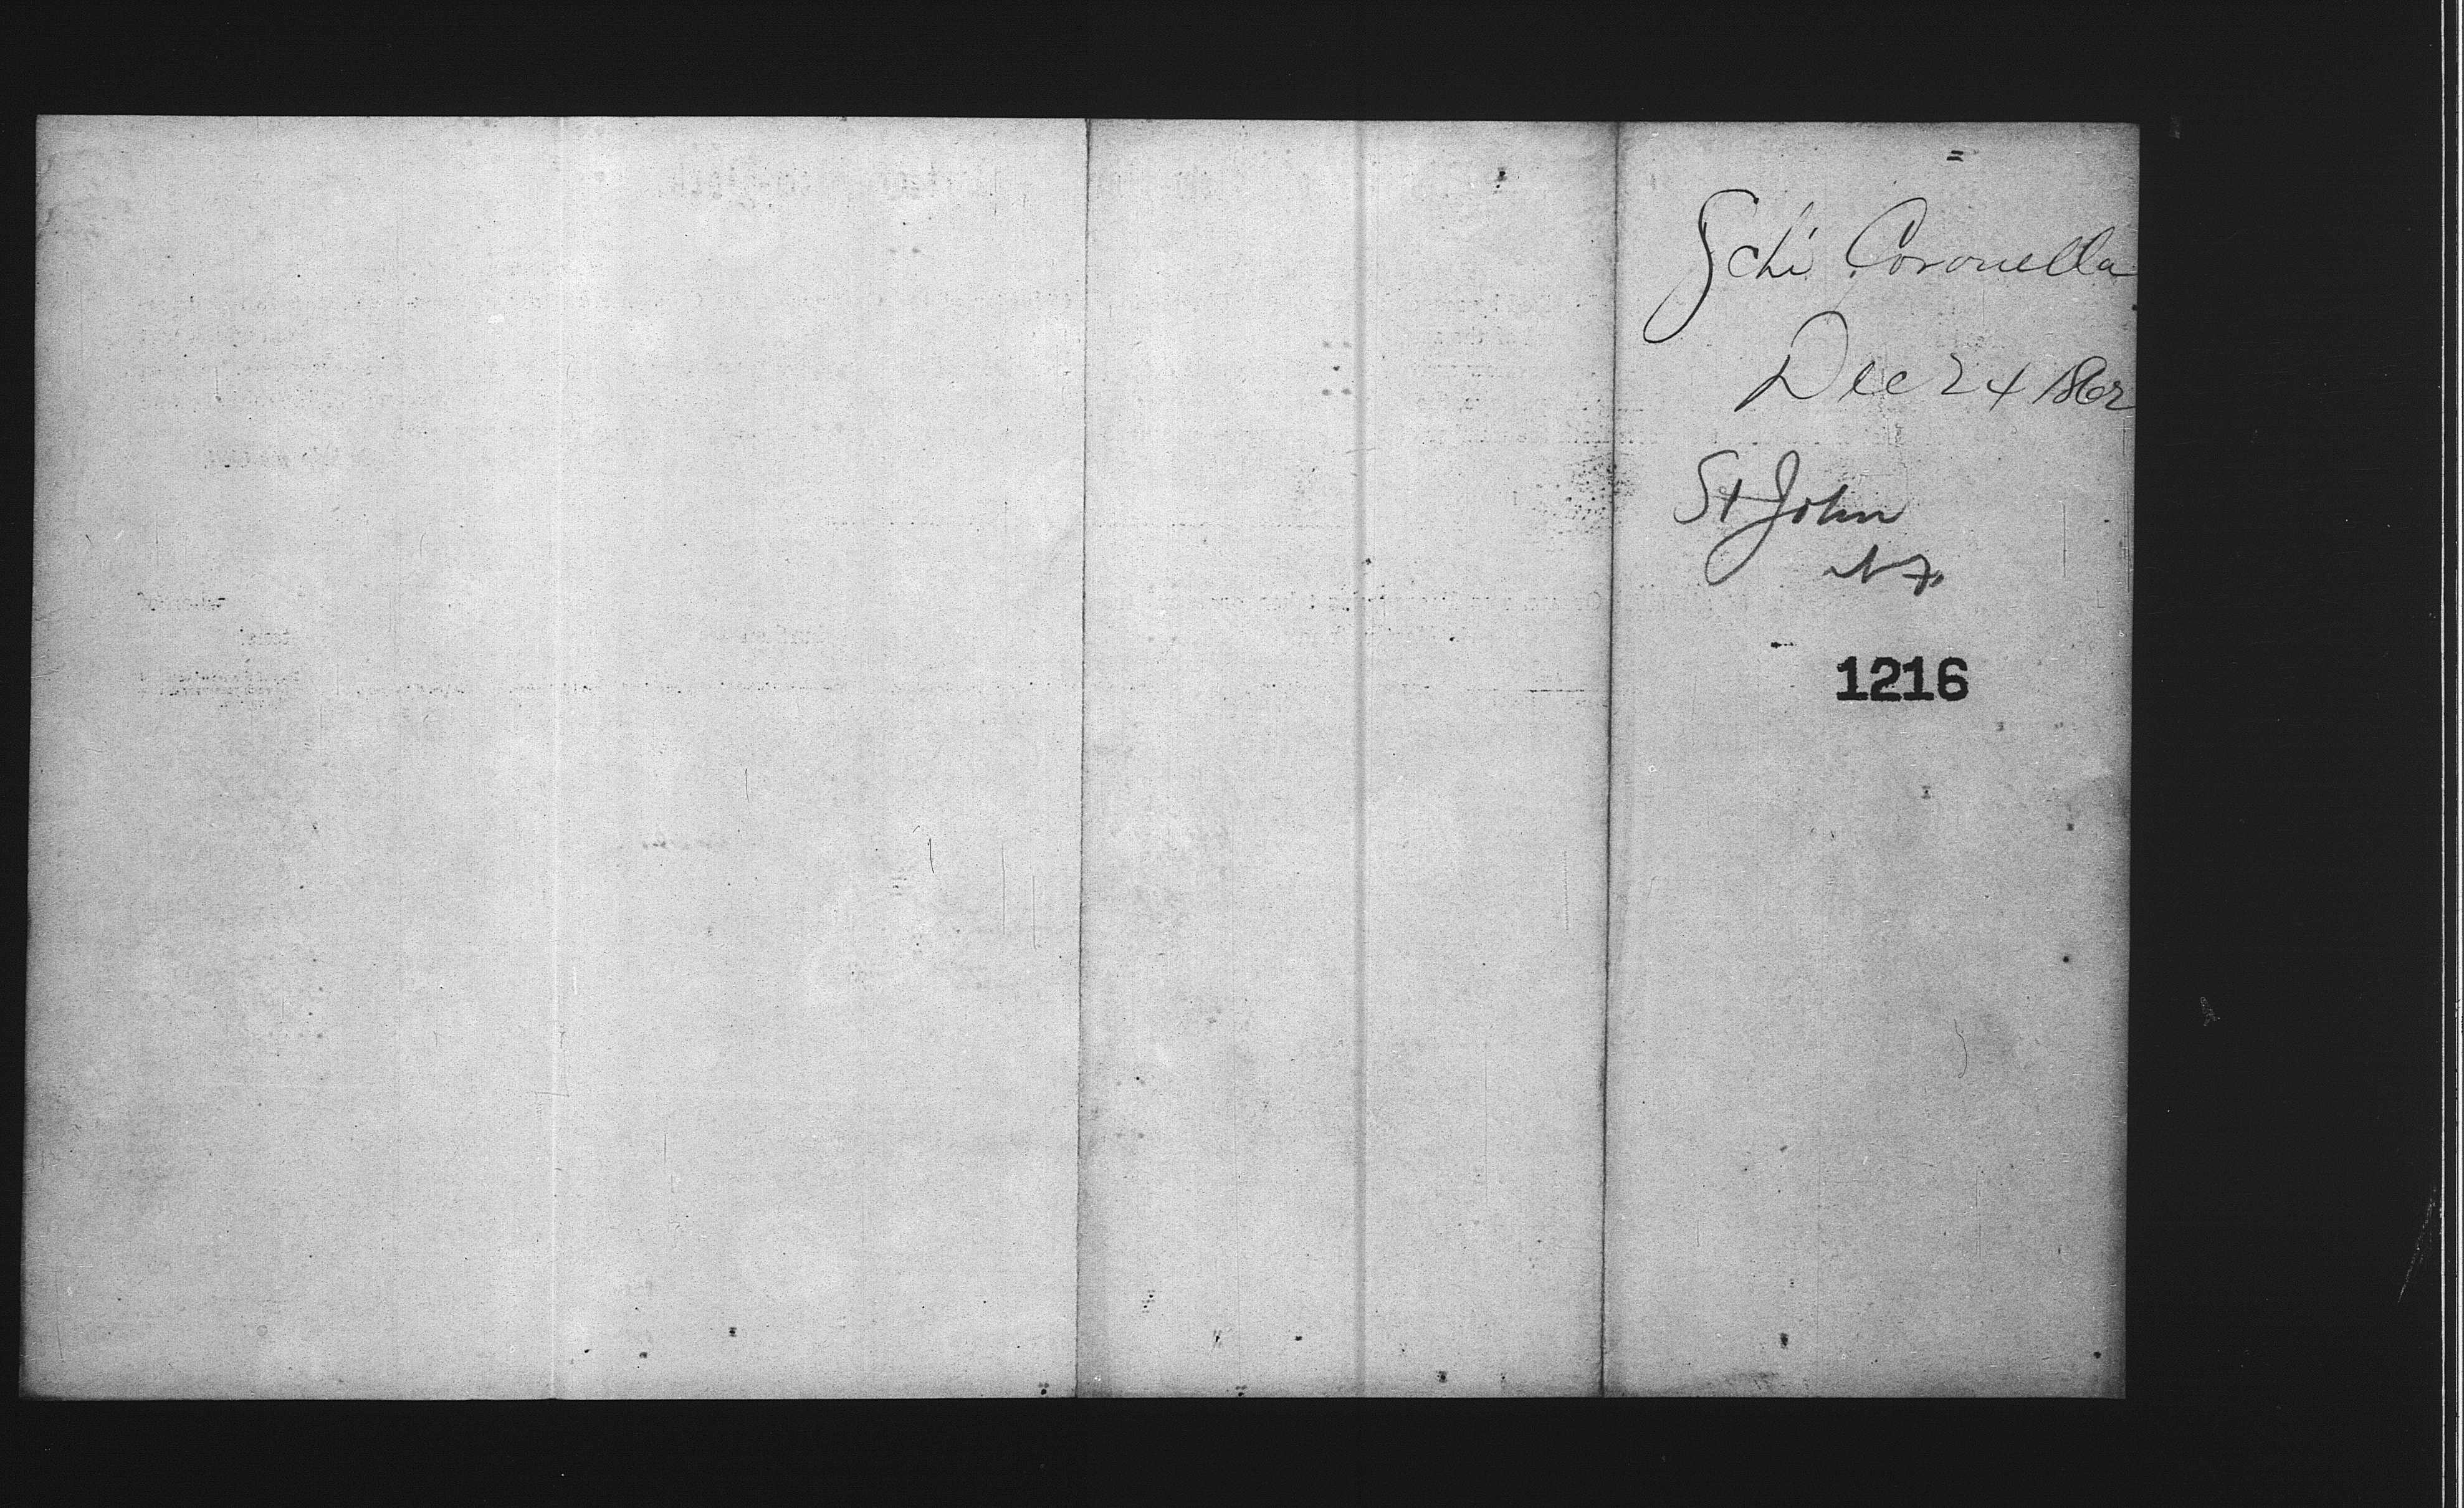 Schr Coronella
Dec 24 1862
St John
N F.
1216